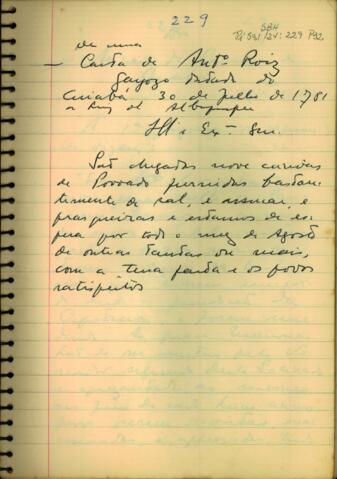 229
SBH
Pt 531/24: 229 P32
de uma
— Carta de Antº Roiz
Gayozo datada do
Cuiabá 30 de Julho de 1781
a Luiz de Albuquerque
Ill e Exmº Snr.
São chegadas nove canoas
de Povoado fornidas bastan
temente de sal, e assucar, e
frasqueiras e estamos de es
pera por todo o mez de Agosto
de outras tantas ou mais,
com a terra farda e os povos
satisfeitos